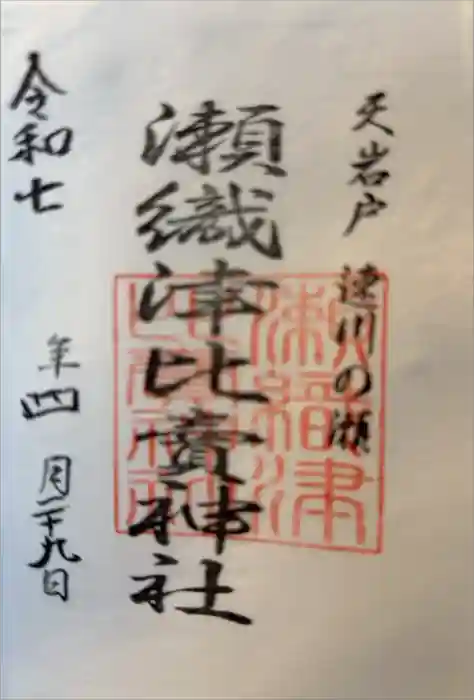 天岩戸 速川の瀬
瀬織津比賣神社
令和七年四月二十九日